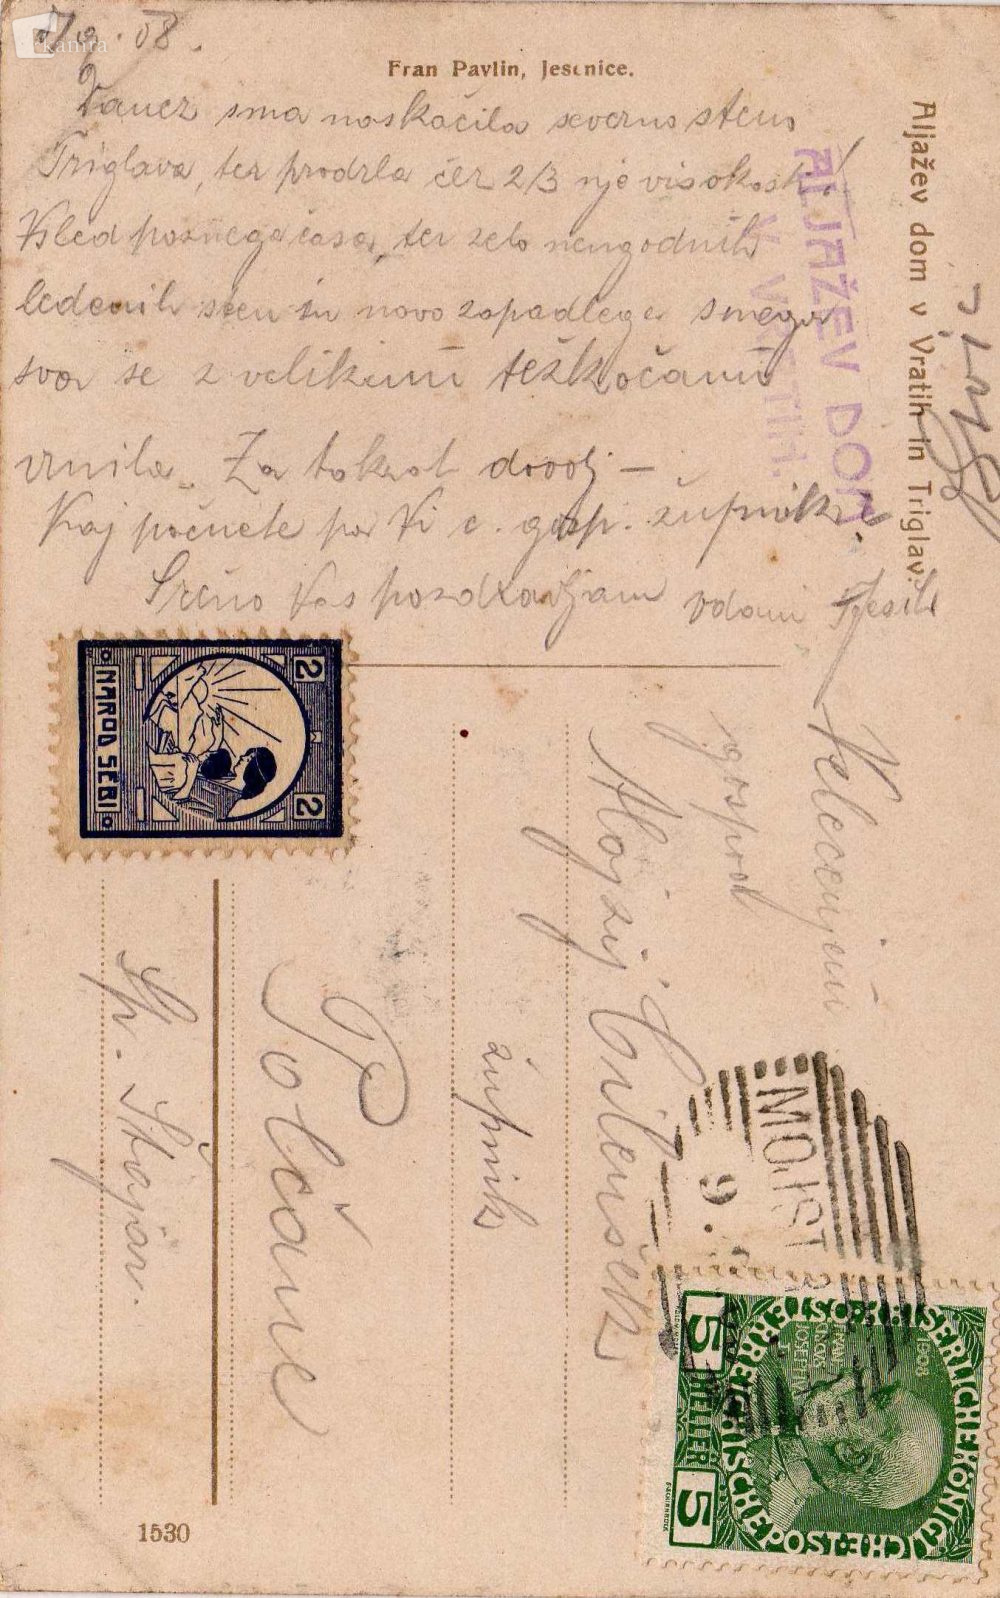 kamra
7/9. 08.
Fran Pavlin, Jesenice.
sma naskočila severno steno
Triglava, ter prodrla čez 2/3 nje visokosti!
Vsled poznega časa, ter zelo neugodnih
ledenih sten in novo zapadlega snega
sva se z velikimi težkočami
vrnila. Za takrat dovolj –
Kaj počnete pa Vi č. gosp. župnik?
Srčno Vas pozdravljam vdani
Aljažev dom v Vratih in Triglav.
ALJAŽEV DOM
V VRATIH.
2
2
NAROD SEBI
Velecenjeni
gospod
Alojzij Cilenšek
župnik
Polčane
Sp. Štajer.
MOJST
9.
KAISERLICHE KÖNIGLICHE
ÖSTERREICHISCHE POST
1908
5 HELLER 5
1530